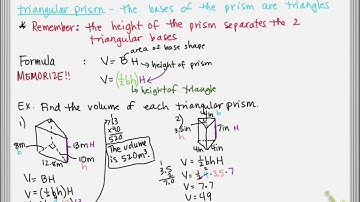 triangular prism - the bases of the prism are triangles
* Remember: the height of the prism separates the 2
triangular bases
area of base shape
Formula
V = BH → height of prism
MEMORIZE!!
V = (½bh)H
→ height of triangle
Ex. Find the volume of each triangular prism.
1)
8m
b
13m H
10m
h
12.8m
V = BH
13
x40
520
The volume
is 520m³.
2)
3.5in
h
7in H
4in
4in
b
V = ½bhH
V = 7·7
V = 49
3.5
2
7.0